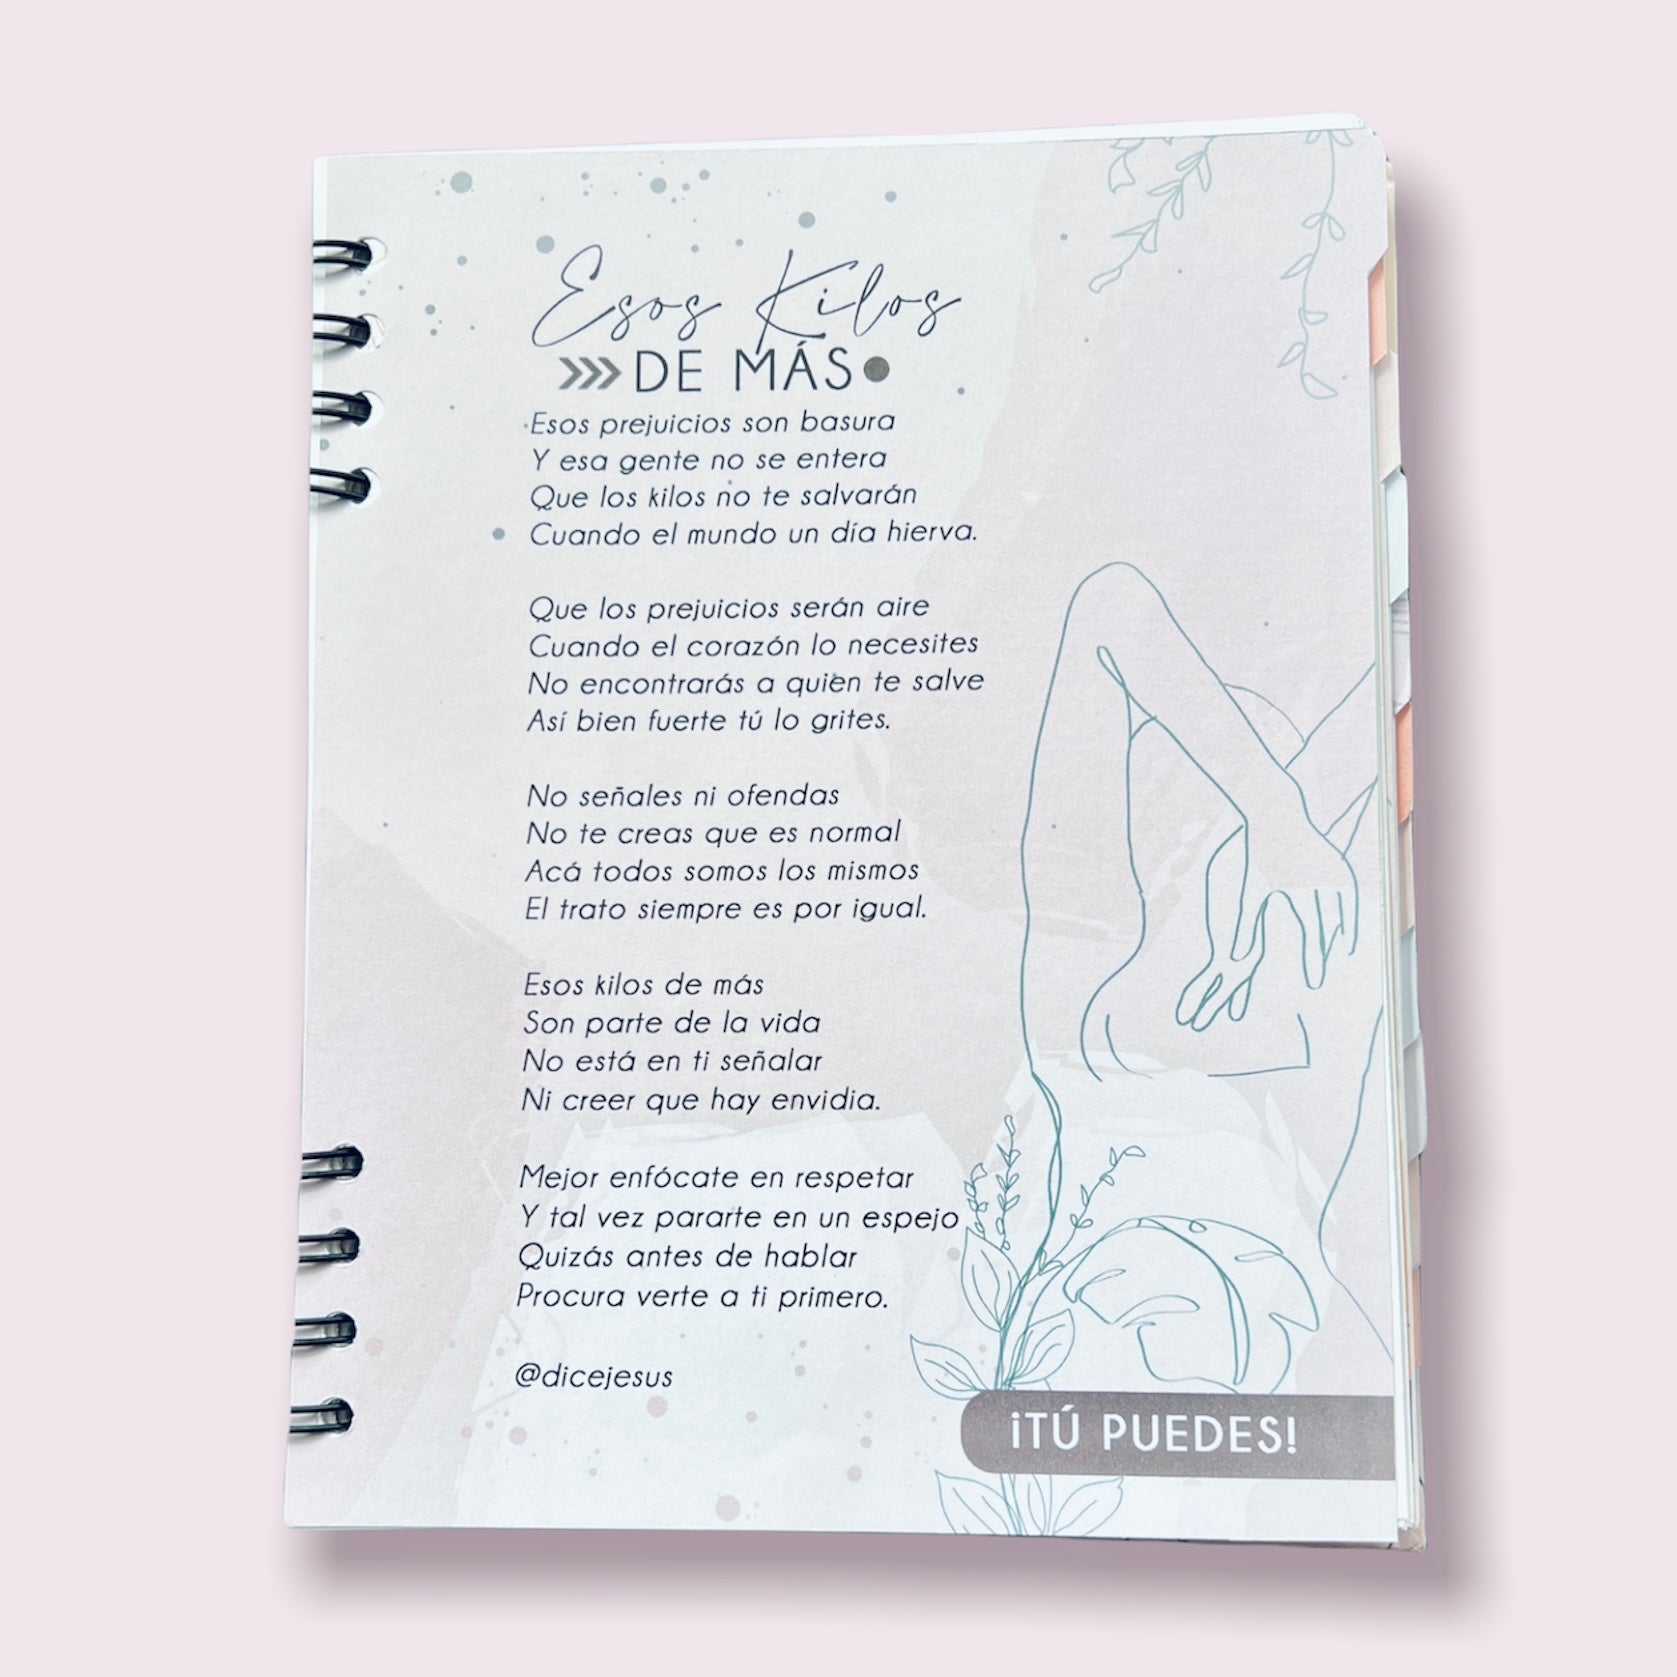 Esos Kilos
DE MÁS
Esos prejuicios son basura
Y esa gente no se entera
Que los kilos no te salvarán
Cuando el mundo un día hierva.
Que los prejuicios serán aire
Cuando el corazón lo necesites
No encontrarás a quien te salve
Así bien fuerte tú lo grites.
No señales ni ofendas
No te creas que es normal
Acá todos somos los mismos
El trato siempre es por igual.
Esos kilos de más
Son parte de la vida
No está en ti señalar
Ni creer que hay envidia.
Mejor enfócate en respetar
Y tal vez pararte en un espejo
Quizás antes de hablar
Procura verte a ti primero.
@dicejesus
¡TÚ PUEDES!